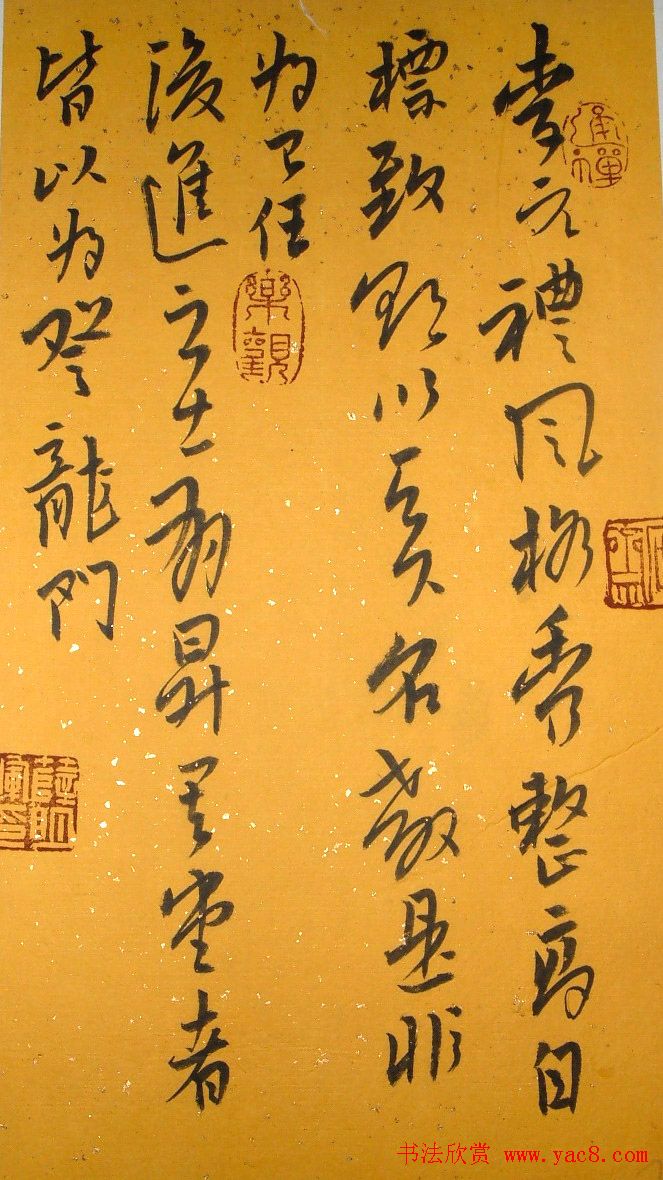 李元禮風格秀整高自
標致欲以天下名教是非
為己任
樂觀
後進之士有昇其堂者
皆以為登龍門
书法欣赏 www.yac8.com